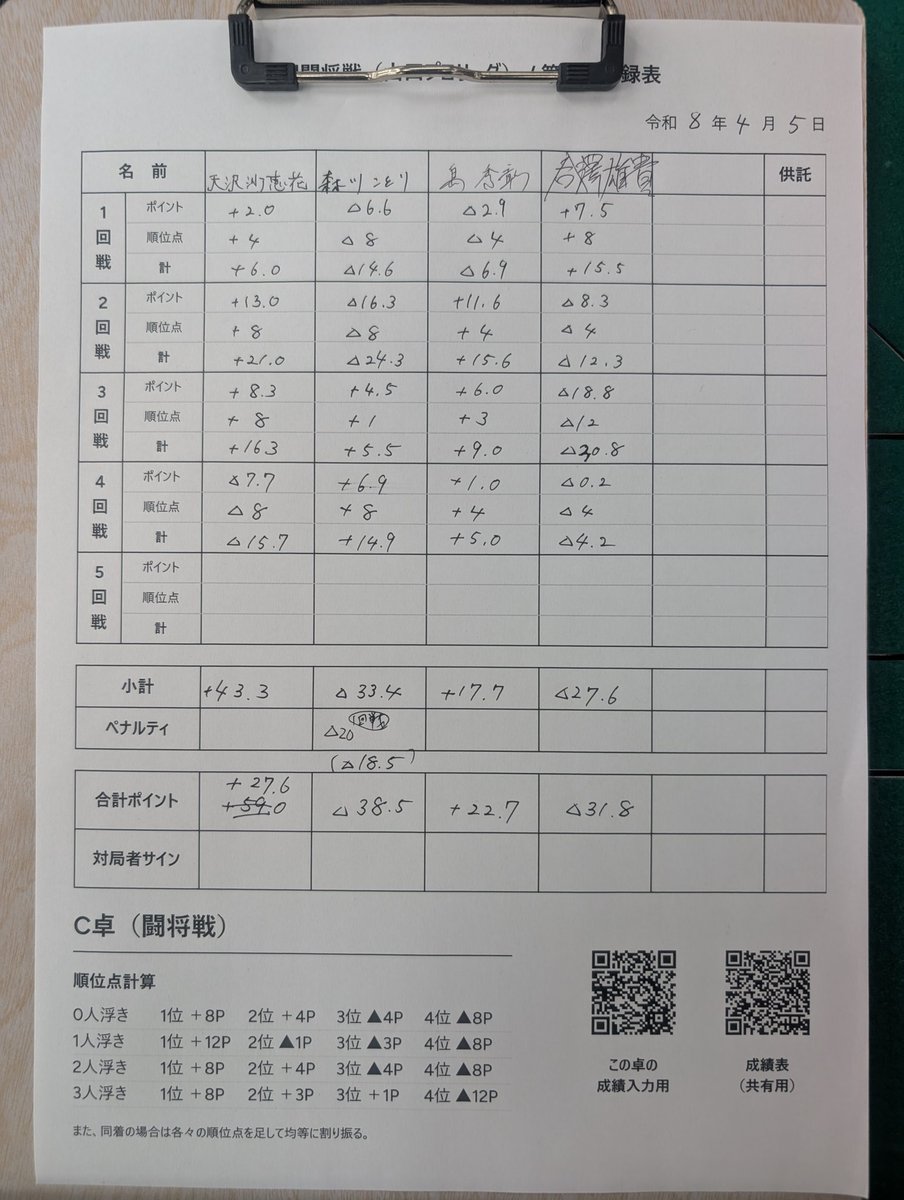 録表
令和 8 年 4 月 5 日
名 前 天沢沙恵花 森川ことり 供託
1回戦 ポイント +2.0 △6.6 △2.9 +7.5
順位点 +4 △8 △4 +8
計 +6.0 △14.6 △6.9 +15.5
2回戦 ポイント +13.0 △16.3 +11.6 △8.3
順位点 +8 △8 +4 △4
計 +21.0 △24.3 +15.6 △12.3
3回戦 ポイント +8.3 +4.5 +6.0 △18.8
順位点 +8 +1 +3 △12
計 +163 +5.5 +9.0 △30.8
4回戦 ポイント △7.7 +6.9 +1.0 △0.2
順位点 △8 +8 +4 △4
計 △15.7 +14.9 +5.0 △4.2
5回戦 ポイント
順位点
計
小計 +43.3 △33.4 +17.7 △27.6
ペナルティ △20 1回戦
(△18.5)
+27.6
合計ポイント +59.0 △38.5 +22.7 △31.8
対局者サイン
C卓（闘将戦）
順位点計算
0人浮き 1位 +8P 2位 +4P 3位 ▲4P 4位 ▲8P
1人浮き 1位 +12P 2位 ▲1P 3位 ▲3P 4位 ▲8P
2人浮き 1位 +8P 2位 +4P 3位 ▲4P 4位 ▲8P
3人浮き 1位 +8P 2位 +3P 3位 +1P 4位 ▲12P
また、同着の場合は各々の順位点を足して均等に割り振る。
この卓の
成績入力用
成績表
（共有用）